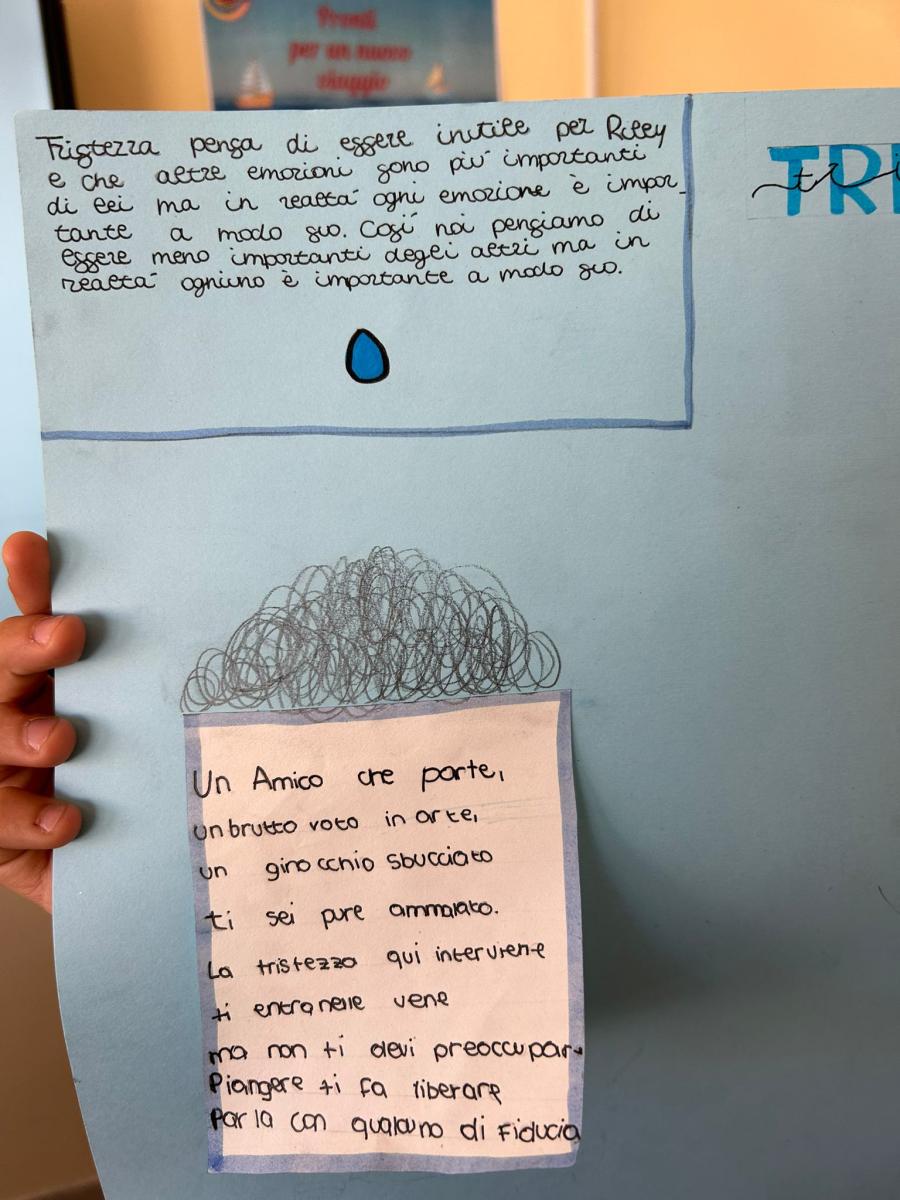 Pronti
per un nuovo
viaggio
Tristezza pensa di essere inutile per Riley
e che altre emozioni sono più importanti
di lei ma in realtà ogni emozione è impor_
tante a modo suo. Così noi pensiamo di
essere meno importanti degli altri ma in
realtà ogniuno è importante a modo suo.
TRI
tri
Un Amico che parte,
un brutto voto in arte,
un ginocchio sbucciato
ti sei pure ammalato.
La tristezza qui interviene
ti entra nelle vene
ma non ti devi preoccupar.
Piangere ti fa liberare
Parla con qualcuno di Fiducia